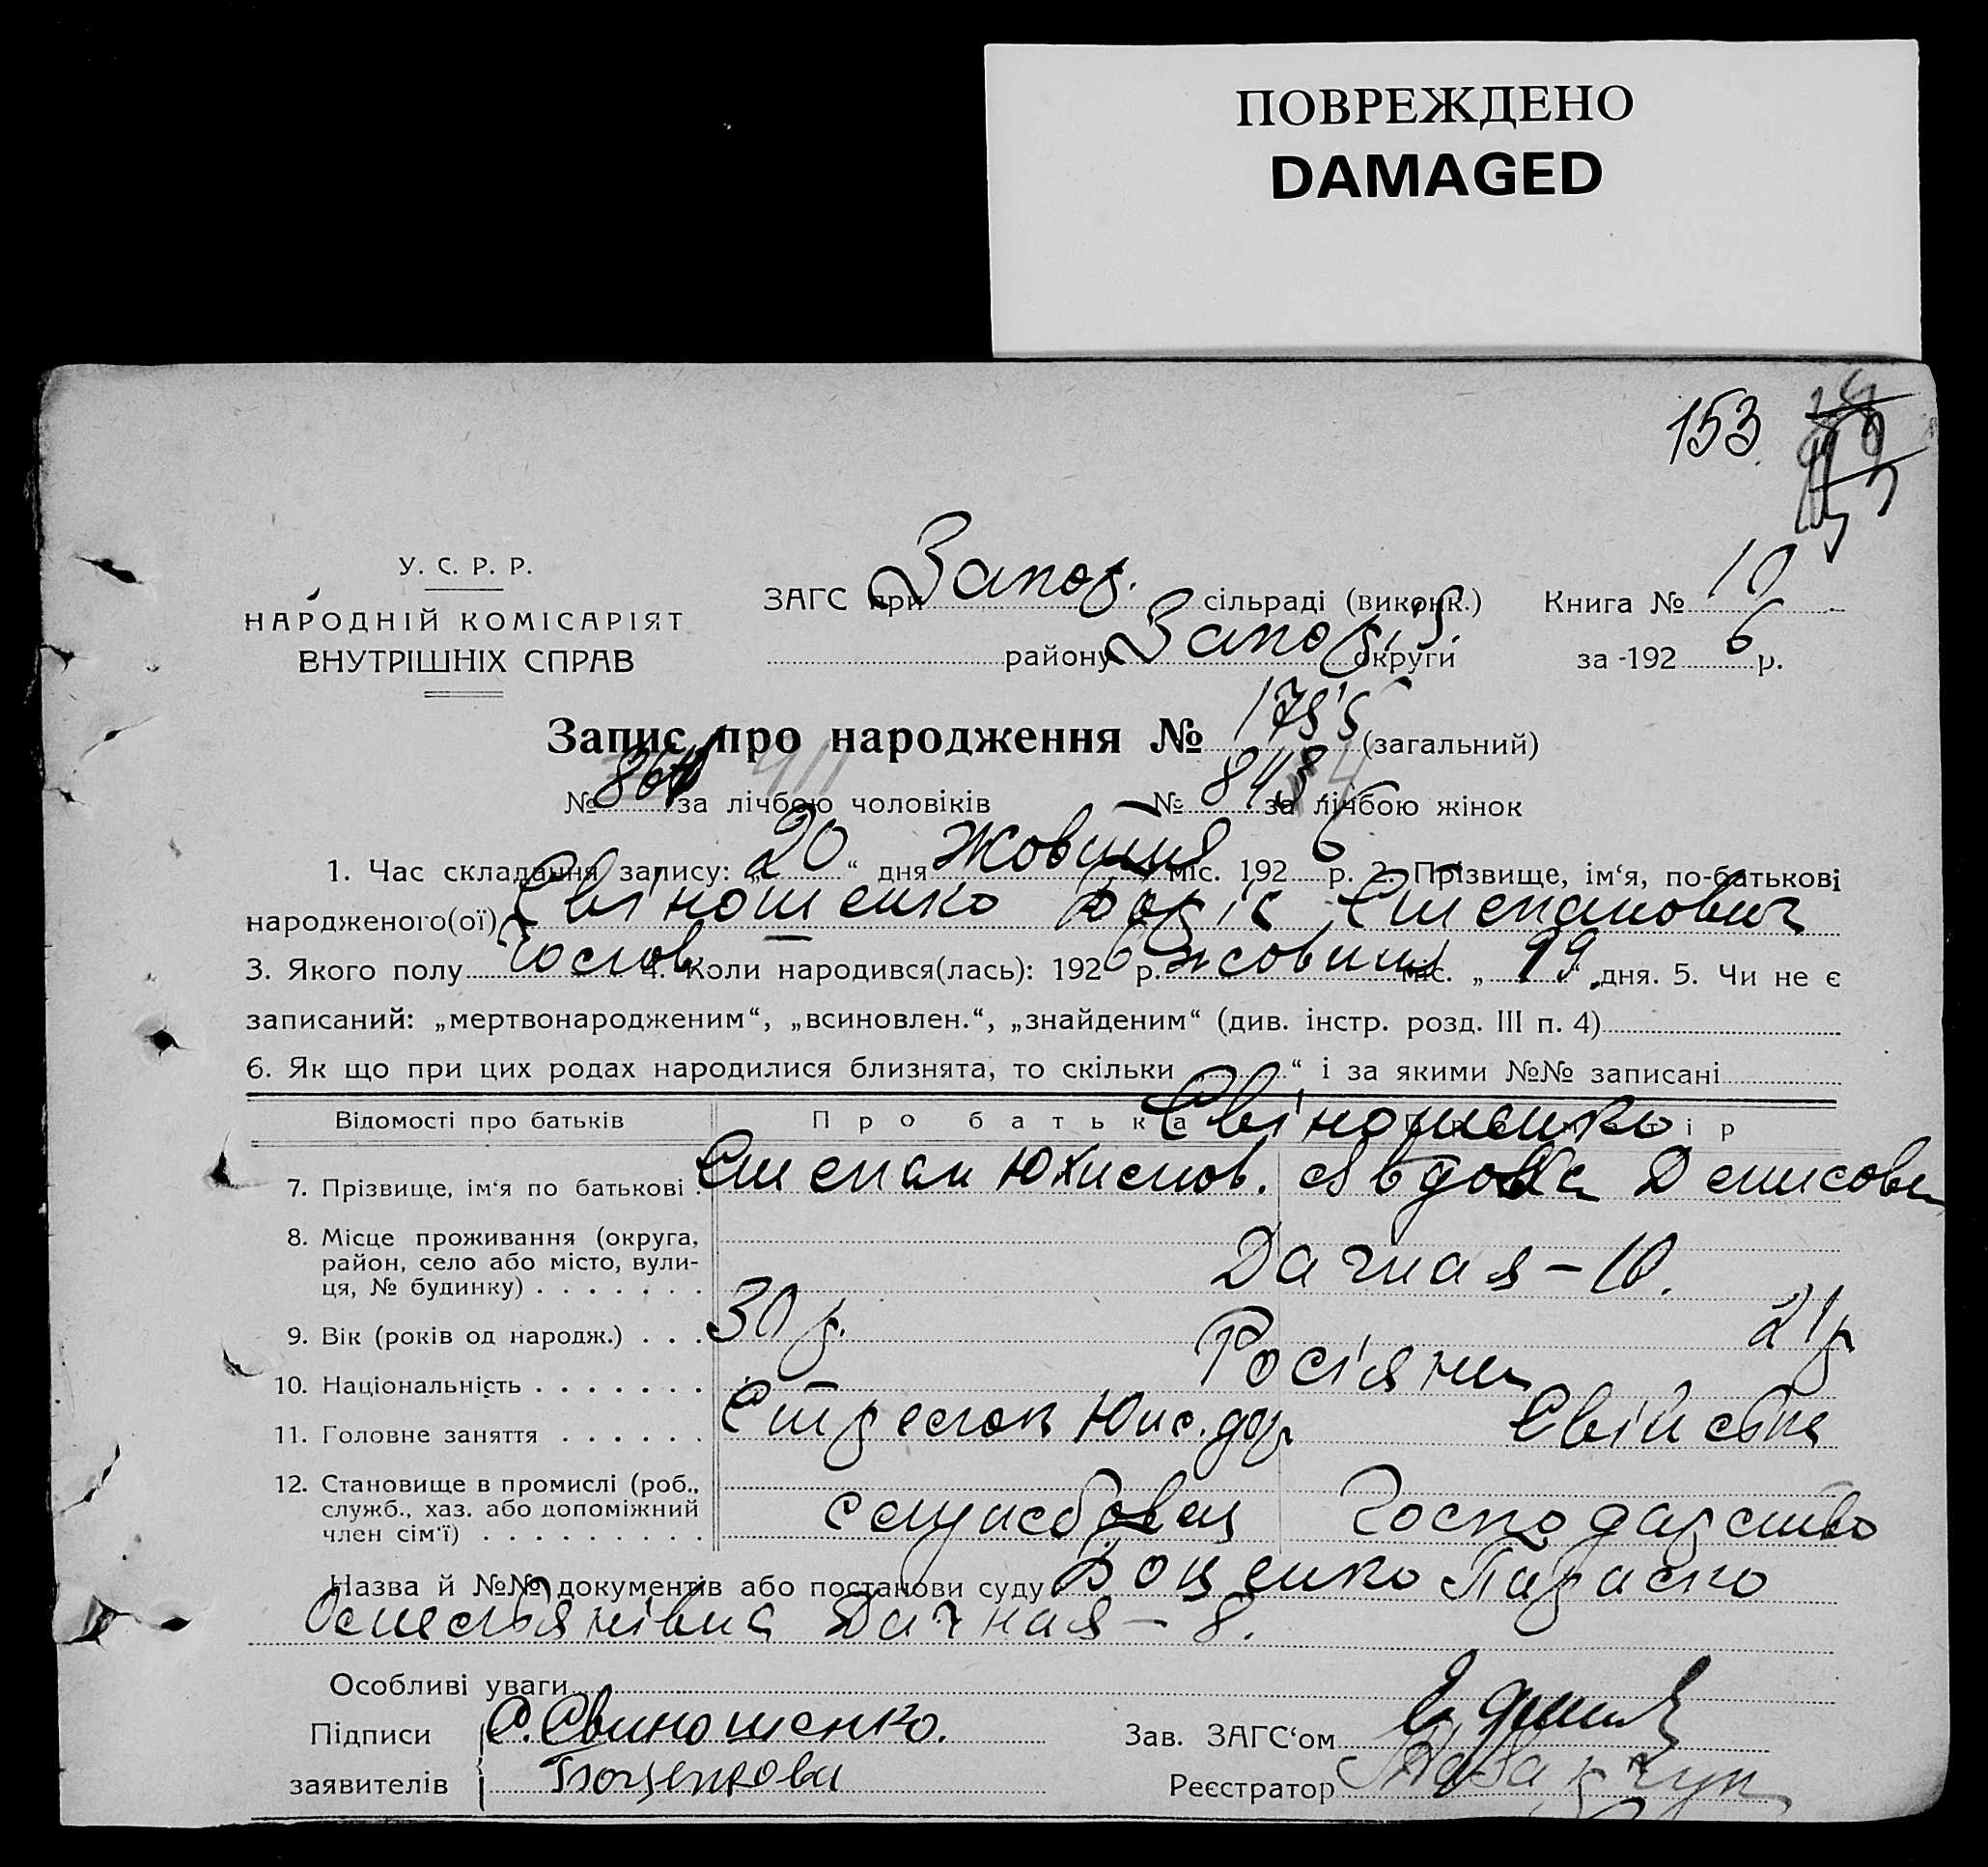 ПОВРЕЖДЕНО
DAMAGED
153
У. С. Р. Р.
НАРОДНІЙ КОМІСАРІЯТ
ВНУТРІШНІХ СПРАВ
ЗАГС при Запор. сільраді (виконк.) Книга № 10
району Запоріз. округи за -1926 р.
Запис про народження № (загальний)
№ за лічбою чоловіків № за лічбою жінок
1. Час складання запису: „20“ дня Жовтня міс. 1926 р. 2. Прізвище, ім‘я, по-батькові
народженого(ої) Свіношенко Боріс Степанович
3. Якого полу Чолов 4. Коли народився(лась): 1926 р. жовтня міс. „19“ дня. 5. Чи не є
записаний: „мертвонародженим“, „всиновлен.“, „знайденим“ (див. інстр. розд. III п. 4)
6. Як що при цих родах народилися близнята, то скільки „ “ і за якими №№ записані
Відомості про батьків Про батька Про матір
Свіношенко
7. Прізвище, ім‘я по батькові Степан Юхимов. Явдоха Денисовн
8. Місце проживання (округа,
район, село або місто, вули-
ця, № будинку) Дачная - 10.
9. Вік (років од народж.) 30 р. 21 р
10. Національність Росіяни
11. Головне заняття Стрелок Свійське
12. Становище в промислі (роб.,
служб., хаз. або допоміжний
член сім‘ї) службовец Господарство
Назва й №№ документів або постанови суду Боценко Параска
Омельянівна Дачная - 8.
Особливі уваги
Підписи С. Свиношенко. Зав. ЗАГС‘ом
заявителів Боценкова Реєстратор